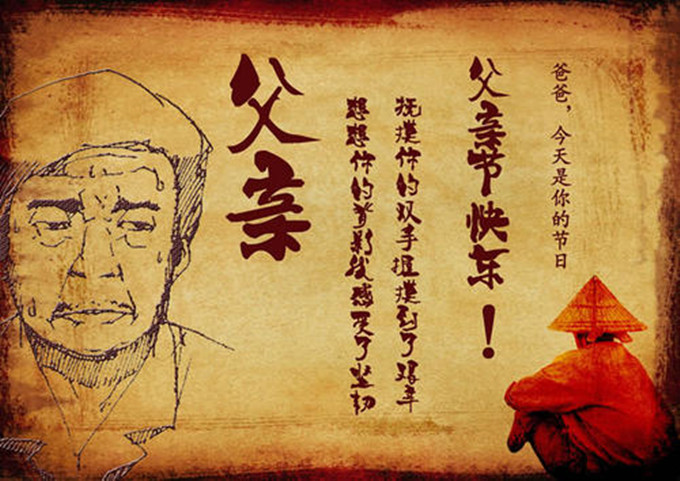 爸爸，今天是你的节日
父亲节快乐！
抚摸你的双手我摸到了艰辛
想想你的背影我感受了坚韧
父亲